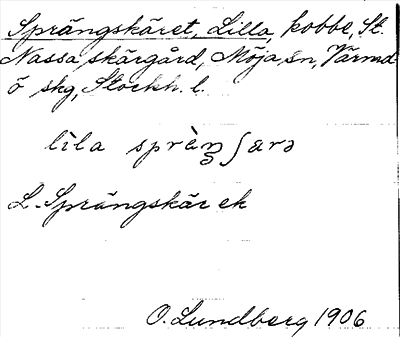 Sprängskäret, Lilla, kobbe, St.
Nassa skärgård, Möja sn, Värmd
ö skg, Stockh. l.
lìla sprὰŋʃarə
L. Sprängskär ek
O. Lundberg 1906